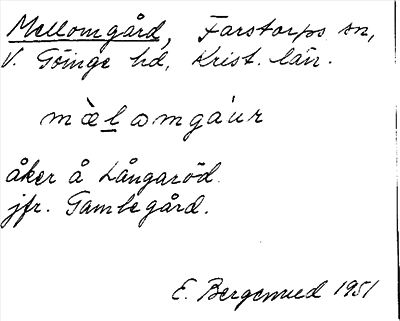 Mellomgård, Farstorps sn,
V. Göinge hd, Krist. län.
mæ̀lomgáur
åker å Långaröd.
jfr. Gamlegård.
E. Bergenved 1951